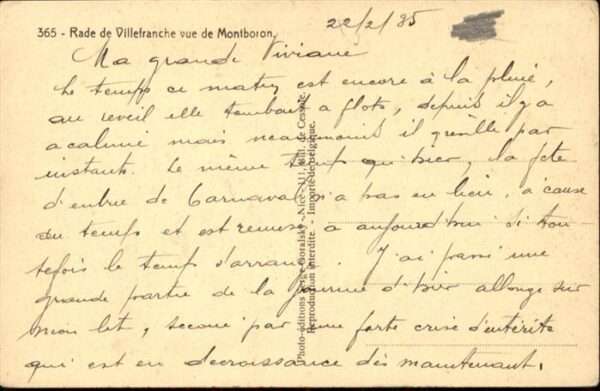 365 - Rade de Villefranche vue de Montboron.
22/2/35
Ma grande Viviane
Le temps ce matin est encore à la pluie,
au reveil elle tombait a flots, depuis il y a
acalmie mais neanmoins il grêille par
instants. Le même temps qu'hier, la fete
d'entrée de Carnaval n'a pas eu lieu, à cause
du temps et est remise a aujourd'hui si tou
tefois le temps s'arrange. J'ai passé une
grande partie de la journée d'hier allongé sur
mon lit, secoué par une forte crise d'entérite
qui est en decroissance dès maintenant.
Photo-éditions Serge Goralsky - Nice - 111, Bld. de Cessole.
Reproduction interdite. - Importé de Belgique.